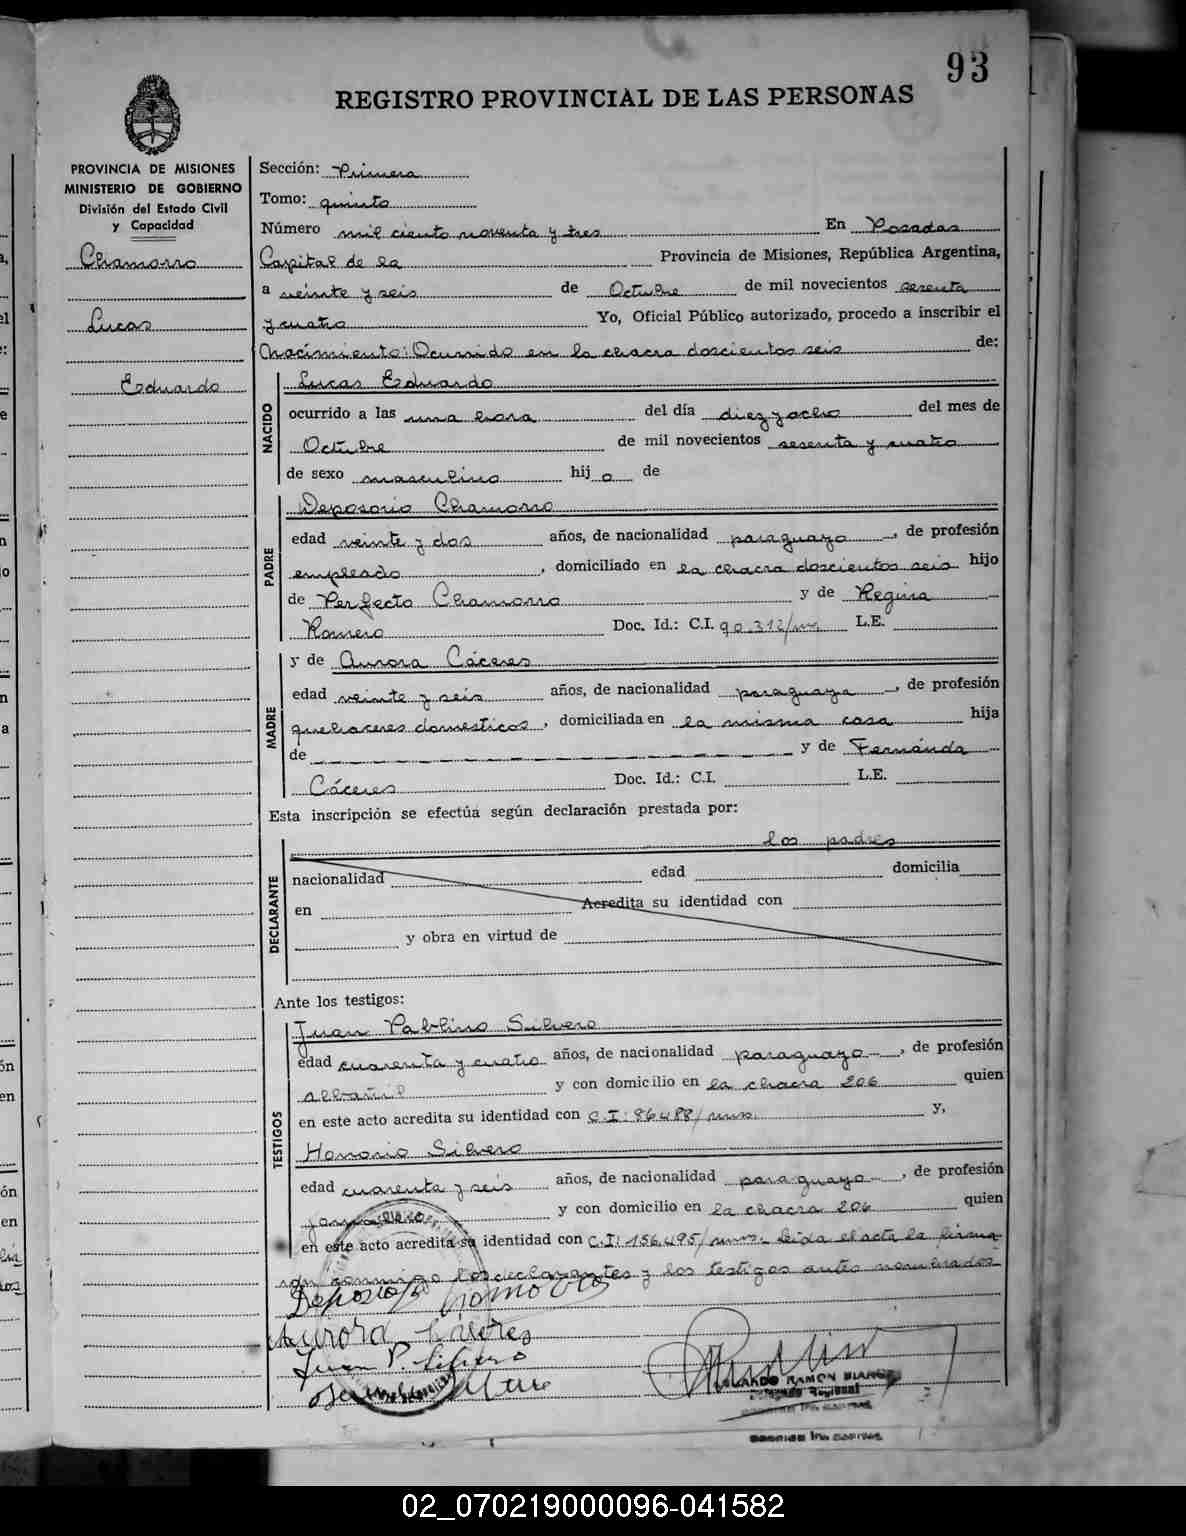 93
REGISTRO PROVINCIAL DE LAS PERSONAS
PROVINCIA DE MISIONES
MINISTERIO DE GOBIERNO
División del Estado Civil
y Capacidad
Chamorro
Lucas
Eduardo
Sección: Primera
Tomo: quinto
Número mil ciento noventa y tres En Posadas
Capital de la Provincia de Misiones, República Argentina,
a veinte y seis de Octubre de mil novecientos sesenta
y cuatro Yo, Oficial Público autorizado, procedo a inscribir el
Nacimiento: Ocurrido en la chacra doscientos seis de:
NACIDO
Lucas Eduardo
ocurrido a las una hora del día diez y ocho del mes de
Octubre de mil novecientos sesenta y cuatro
de sexo masculino hij o de
PADRE
Deposorio Chamorro
edad veinte y dos años, de nacionalidad paraguayo, de profesión
empleado, domiciliado en la chacra doscientos seis hijo
de Perfecto Chamorro y de Regina
Romero Doc. Id.: C.I. 90.312/ L.E.
MADRE
y de Aurora Cáceres
edad veinte y seis años, de nacionalidad paraguaya, de profesión
quehaceres domesticos, domiciliada en la misma casa hija
de y de Fernánda
Cáceres Doc. Id.: C.I. L.E.
Esta inscripción se efectúa según declaración prestada por:
DECLARANTE
los padres
nacionalidad edad domicilia
en Acredita su identidad con
y obra en virtud de
Ante los testigos:
TESTIGOS
Juan Pablino Silvero
edad cuarenta y cuatro años, de nacionalidad paraguayo, de profesión
albañil y con domicilio en la chacra 206 quien
en este acto acredita su identidad con C.I: 86488/mns. y,
Honorio Silvero
edad cuarenta y seis años, de nacionalidad paraguayo, de profesión
jornalero y con domicilio en la chacra 206 quien
en este acto acredita su identidad con C.I: 156.495/mns. Leida el acta la firma
ron conmigo los declarantes y los testigos antes nombrados
Deposorio Chamorro
Aurora Cáceres
Juan P. Silvero
RAMON BIANCO
Delegado Regional
02_070219000096-041582